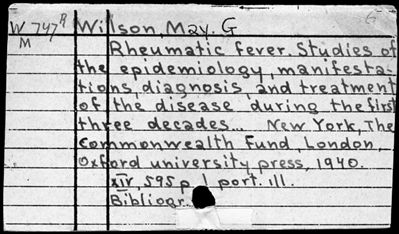 W747R Willson, May. G
M
Rheumatic fever. Studies of
the epidemiology, manifesta-
tions, diagnosis, and treatment
of the disease during the first
three decades... New York, The
Commonwealth Fund, London,
Oxford university press, 1940.
XIV, 595 p. port. ill.
Bibliogr.